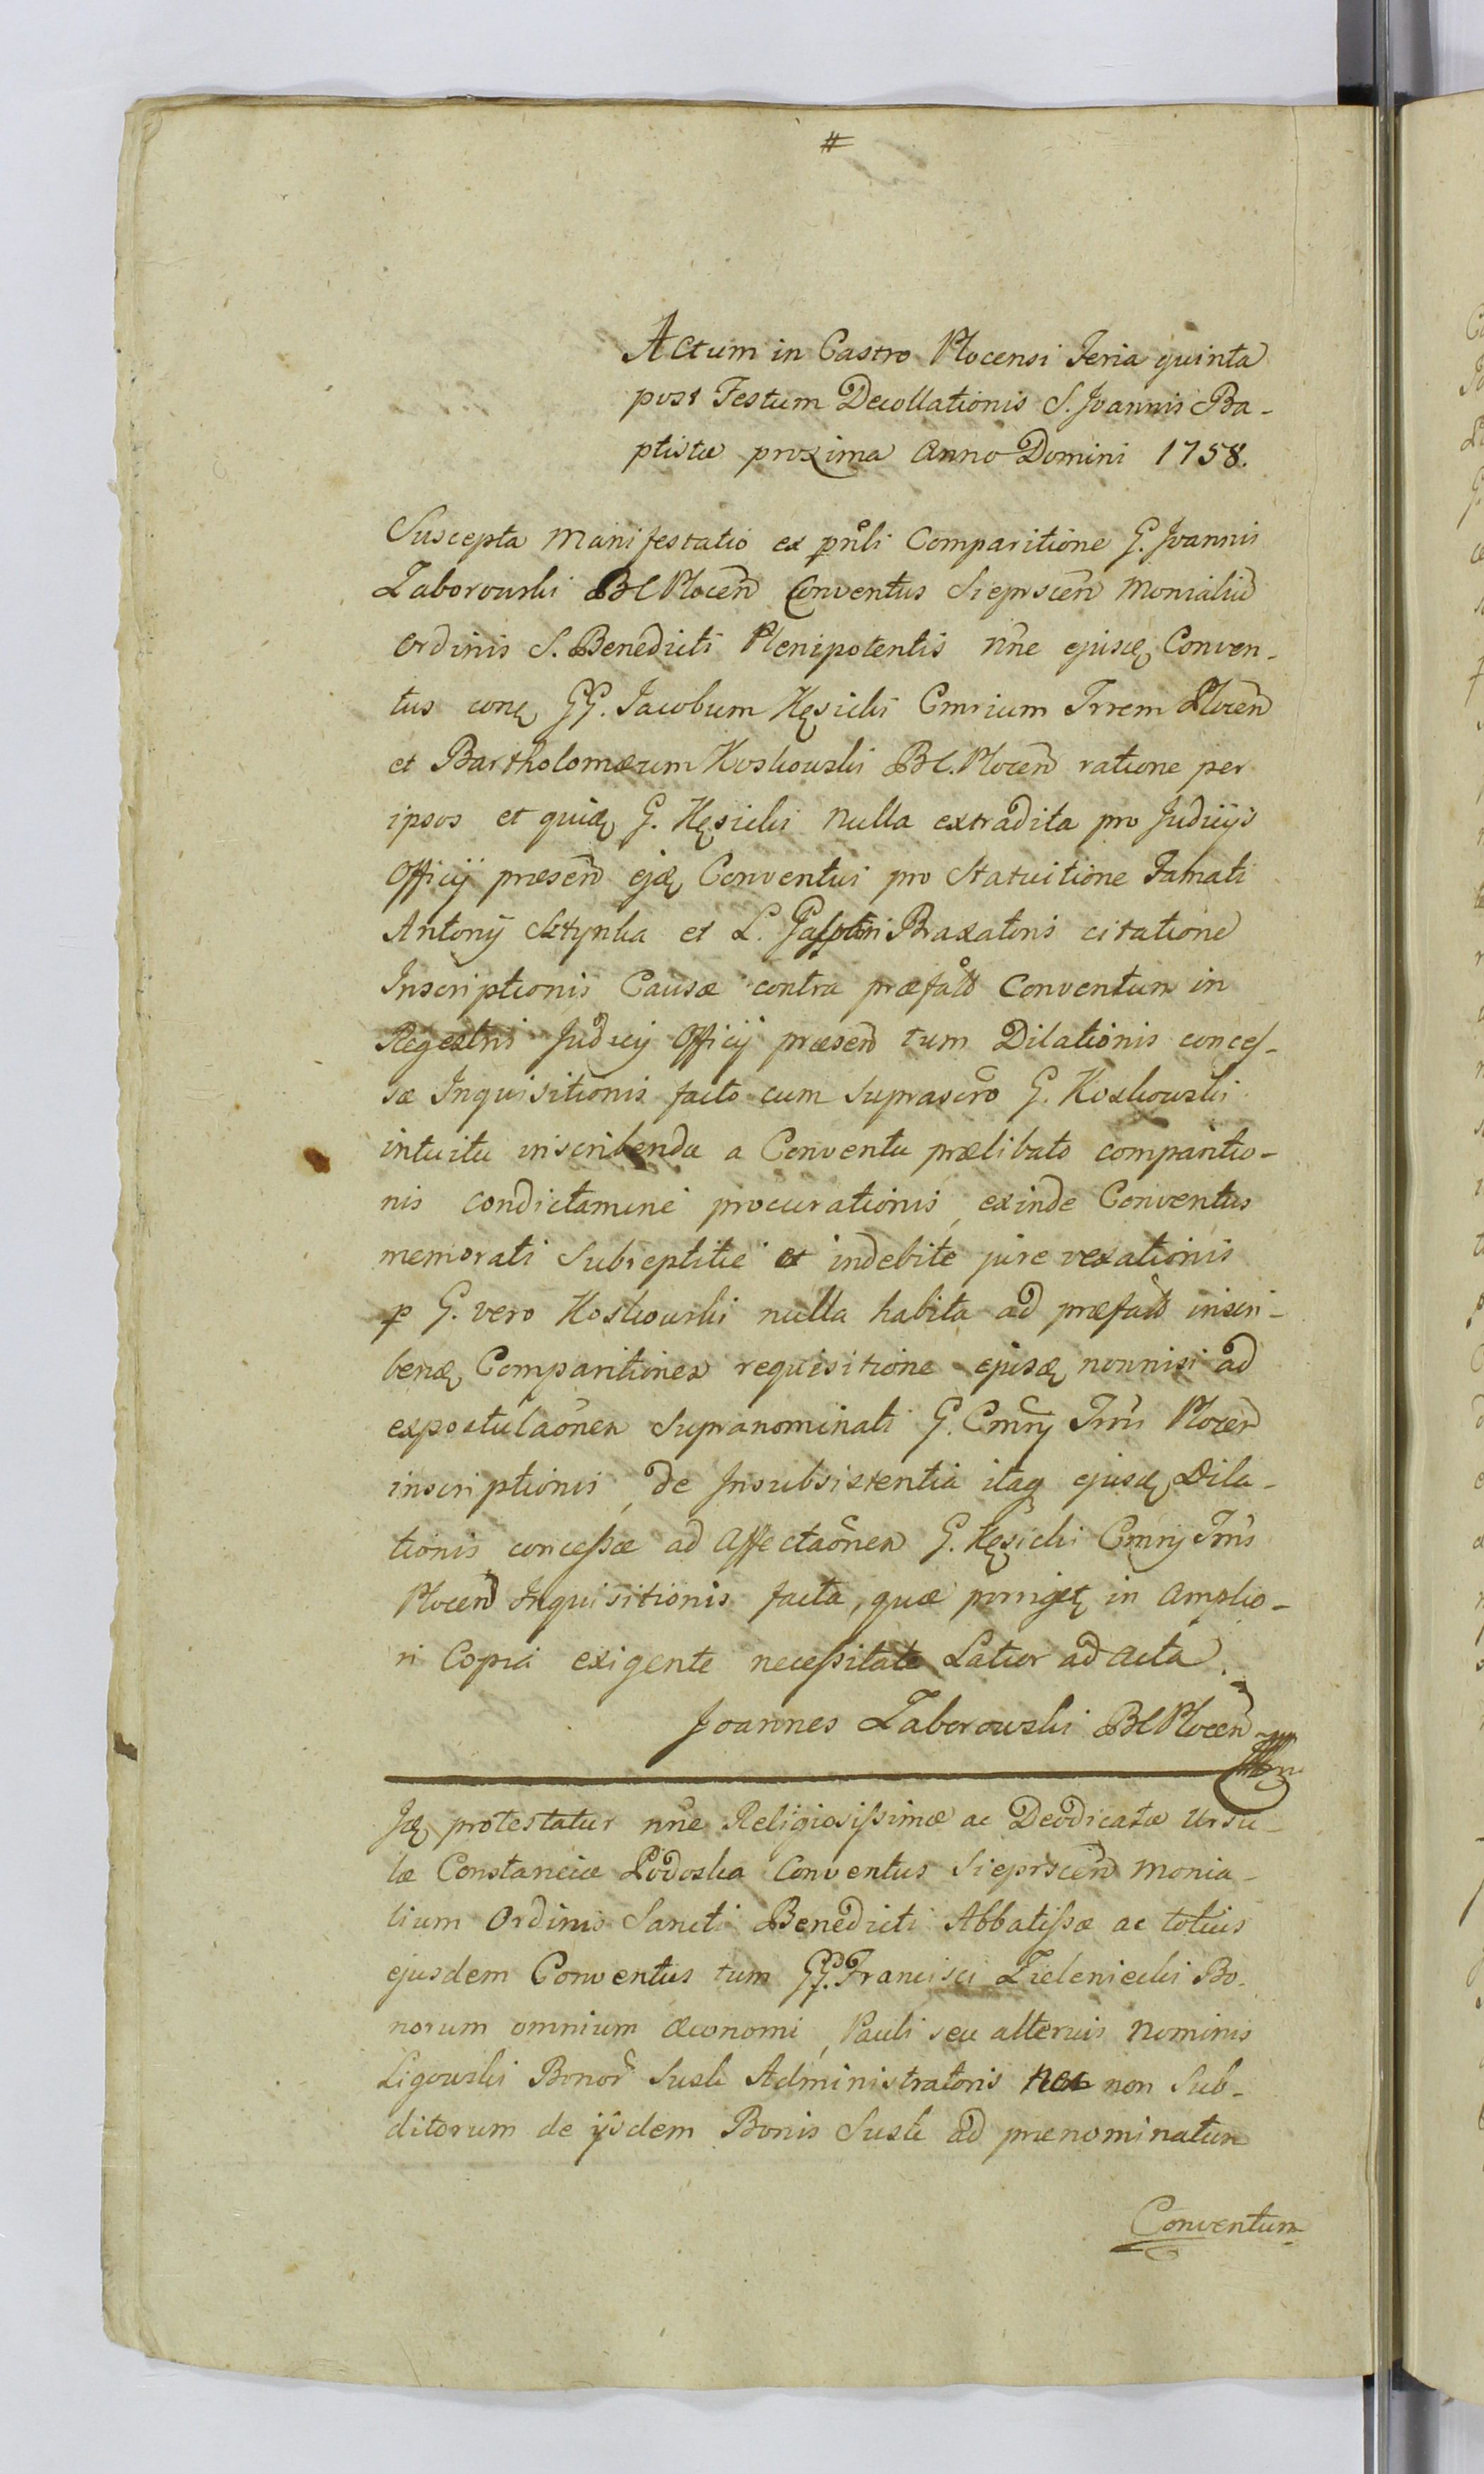 #
Actum in Castro Plocensi Feria quinta
post Festum Decollationis S. Joannis Ba-
ptistæ proxima Anno Domini 1758.
Suscepta Manifestatio ex pñli Comparitione G. Joannis
Zaborowski BC Plocen Conventus Sieprscen Monialiu
Ordinis S. Benedicti Plenipotentis nñe ejusdę Conven-
tus conę GG. Jacobum Kęsicki Cmrium Trrem Plocen
et Bartholomæum Koskowski BC. Plocen ratione per
ipsos et quidę G. Kęsicki nulla extradita pro Judicijs
Officij præsen ejdę Conventui pro Statuitione Famati
Antonij Sktynka et L. Braxatoris citatione
Inscriptionis Causæ contra præfatũ Conventum in
Regestris Judicij Officij præsen tum Dilationis conces-
sæ Inquisitionis facto cum suprascro G. Koskowski
intuitu inscribenda a Conventu prælibato comparitio-
nis condictamine procurationis, exinde Conventus
memorati subreptitie et indebite jure vexationis
p G. vero Koskowski nulla habita ad præfatũ inscri-
bendę Comparitionem requisitione ejusdę nonnisi ad
expostulaõnem supranominati G. Cmrij Trris Plocen
inscriptionis, de Insubsistentia itaq ejusdę Dila-
tionis concessæ ad affectaõnem G. Kęsicki Cmrij Trris
Plocen Inquisitionis facta, quæ porrigetę in Amplio-
ri Copia exigente necessitate Latior ad acta
Joannes Zaborowski BC Plocen
Idę protestatur nñe Religiosissimæ ac Deodicatæ Ursu-
læ Constanciæ Podoska Conventus Sieprscen Monia-
lium Ordinis Sancti Benedicti Abbatissæ ac totius
ejusdem Conventus tum GG. Francisci Zieleniecki Bo-
norum omnium Œconomi, Pauli seu alterius nominis
Ligowski Bonor Susk Administratoris nec non Sub-
ditorum de ijsdem Bonis Susk ad prænominatum
Conventum